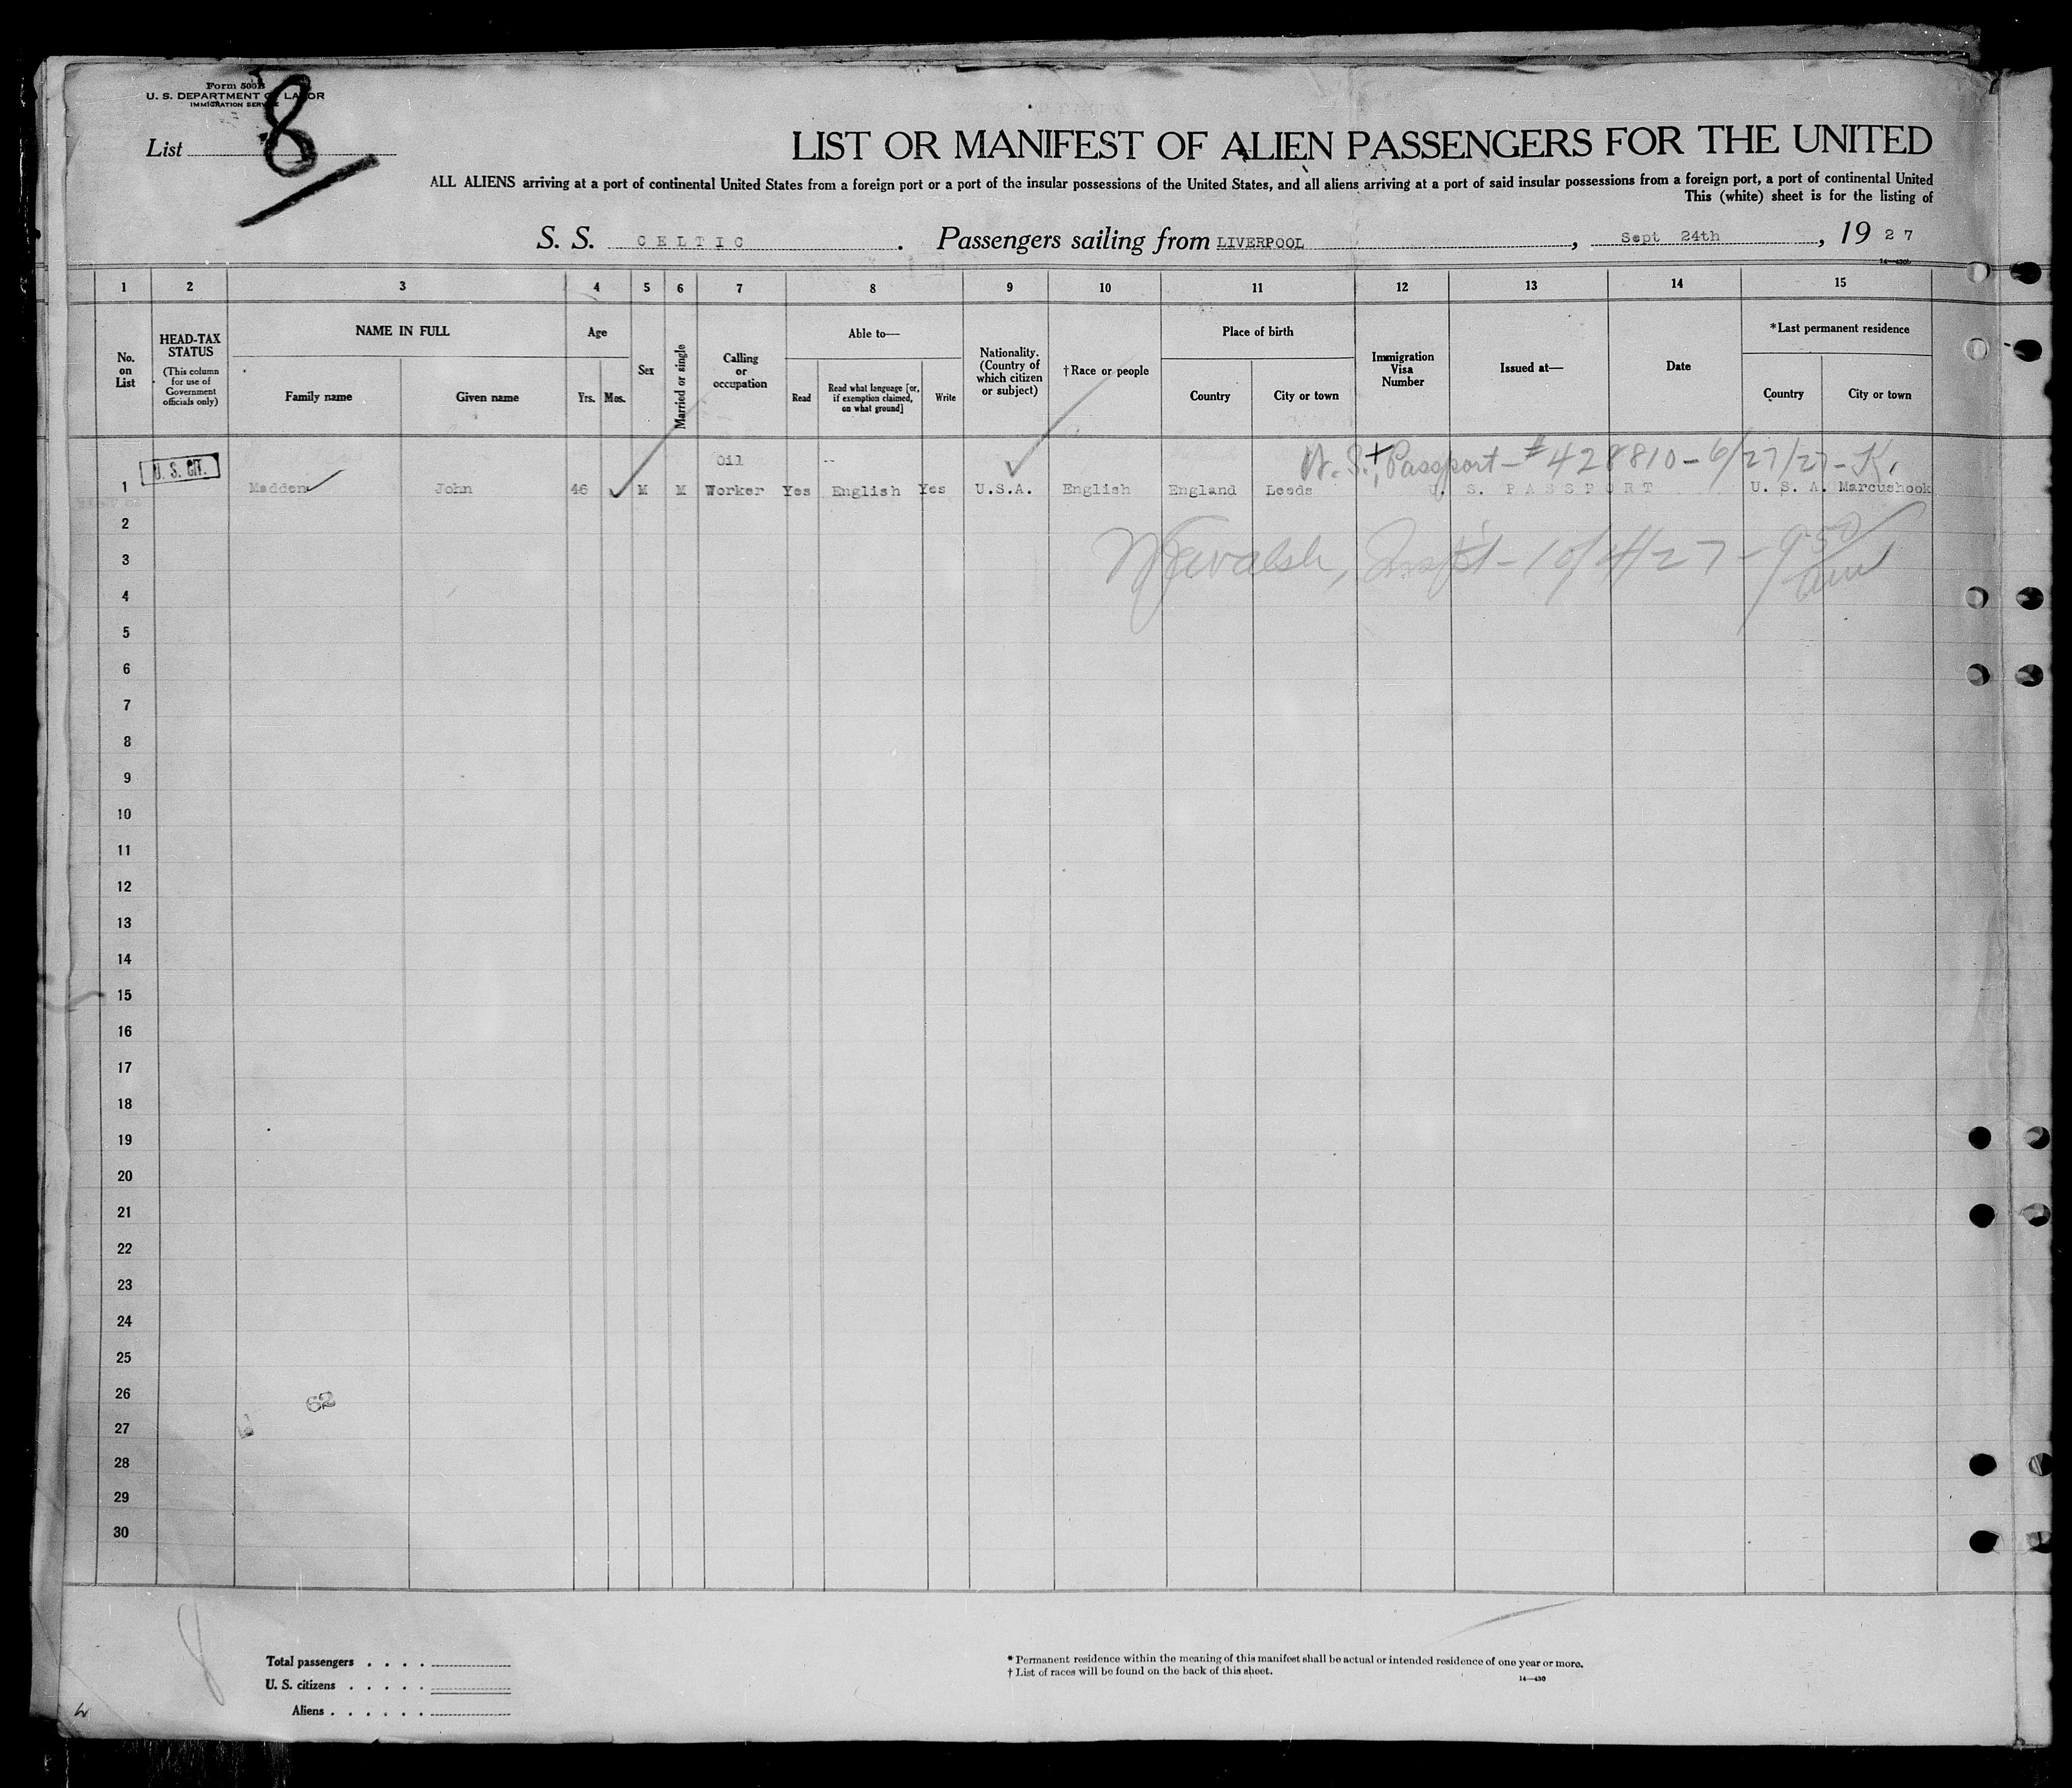 Form 500B
U. S. DEPARTMENT OF LABOR
IMMIGRATION SERVICE
List 8
LIST OR MANIFEST OF ALIEN PASSENGERS FOR THE UNITED
ALL ALIENS arriving at a port of continental United States from a foreign port or a port of the insular possessions of the United States, and all aliens arriving at a port of said insular possessions from a foreign port, a port of continental United
This (white) sheet is for the listing of
S. S. CELTIC. Passengers sailing from LIVERPOOL, Sept 24th, 1927
14—430b
1 2 3 4 5 6 7 8 9 10 11 12 13 14 15
No. on List
HEAD-TAX STATUS
(This column for use of Government officials only)
NAME IN FULL
Family name Given name
Age
Yrs. Mos.
Sex
Married or single
Calling or occupation
Able to—
Read Read what language [or, if exemption claimed, on what ground] Write
Nationality. (Country of which citizen or subject)
†Race or people
Place of birth
Country City or town
Immigration Visa Number
Issued at—
Date
*Last permanent residence
Country City or town
U. S. CIT.
U. S. Passport - #428810 - 6/27/27 - K.
1 Madden John 46 M M Oil Worker Yes English Yes U.S.A. English England Leeds U. S. PASSPORT U. S. A. Marcushook
2
Walsh, Insp't - 10/4/27 - 9:50 am
3
4
5
6
7
8
9
10
11
12
13
14
15
16
17
18
19
20
21
22
23
24
25
26
62
27
28
29
30
8
Total passengers . . . .
U. S. citizens . . . . .
Aliens . . . . . .
* Permanent residence within the meaning of this manifest shall be actual or intended residence of one year or more.
† List of races will be found on the back of this sheet.
14—430